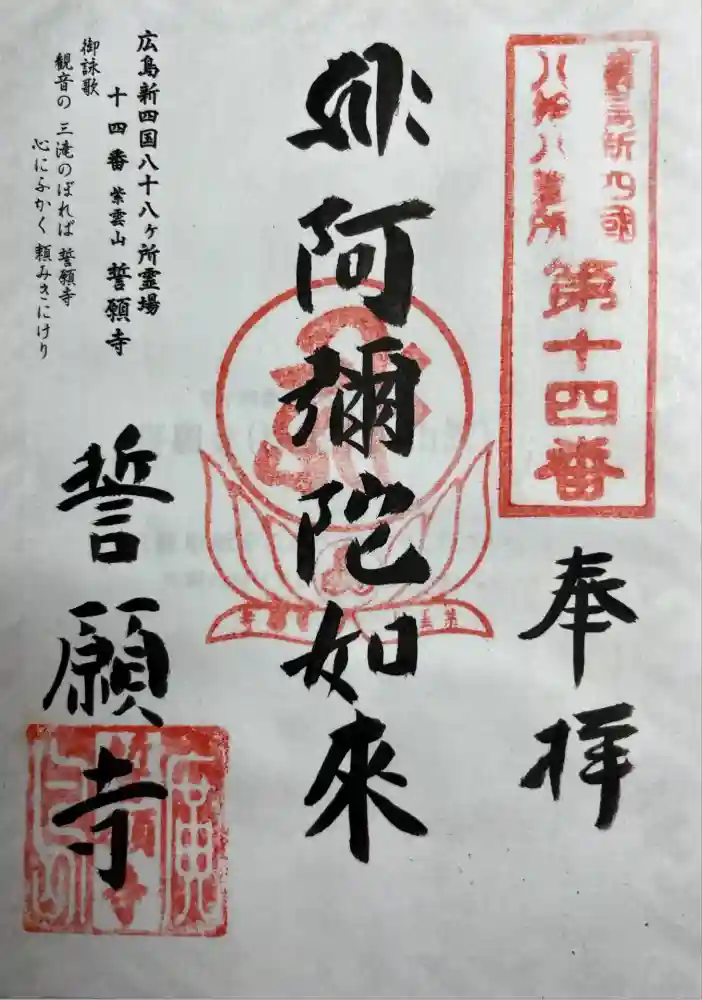 廣島新四國
八拾八箇所
第十四番
奉拝
阿彌陀如來
誓願寺
広島新四国八十八ヶ所霊場
十四番 紫雲山 誓願寺
御詠歌
観音の 三滝のぼれば 誓願寺
心にふかく 頼みきにけり